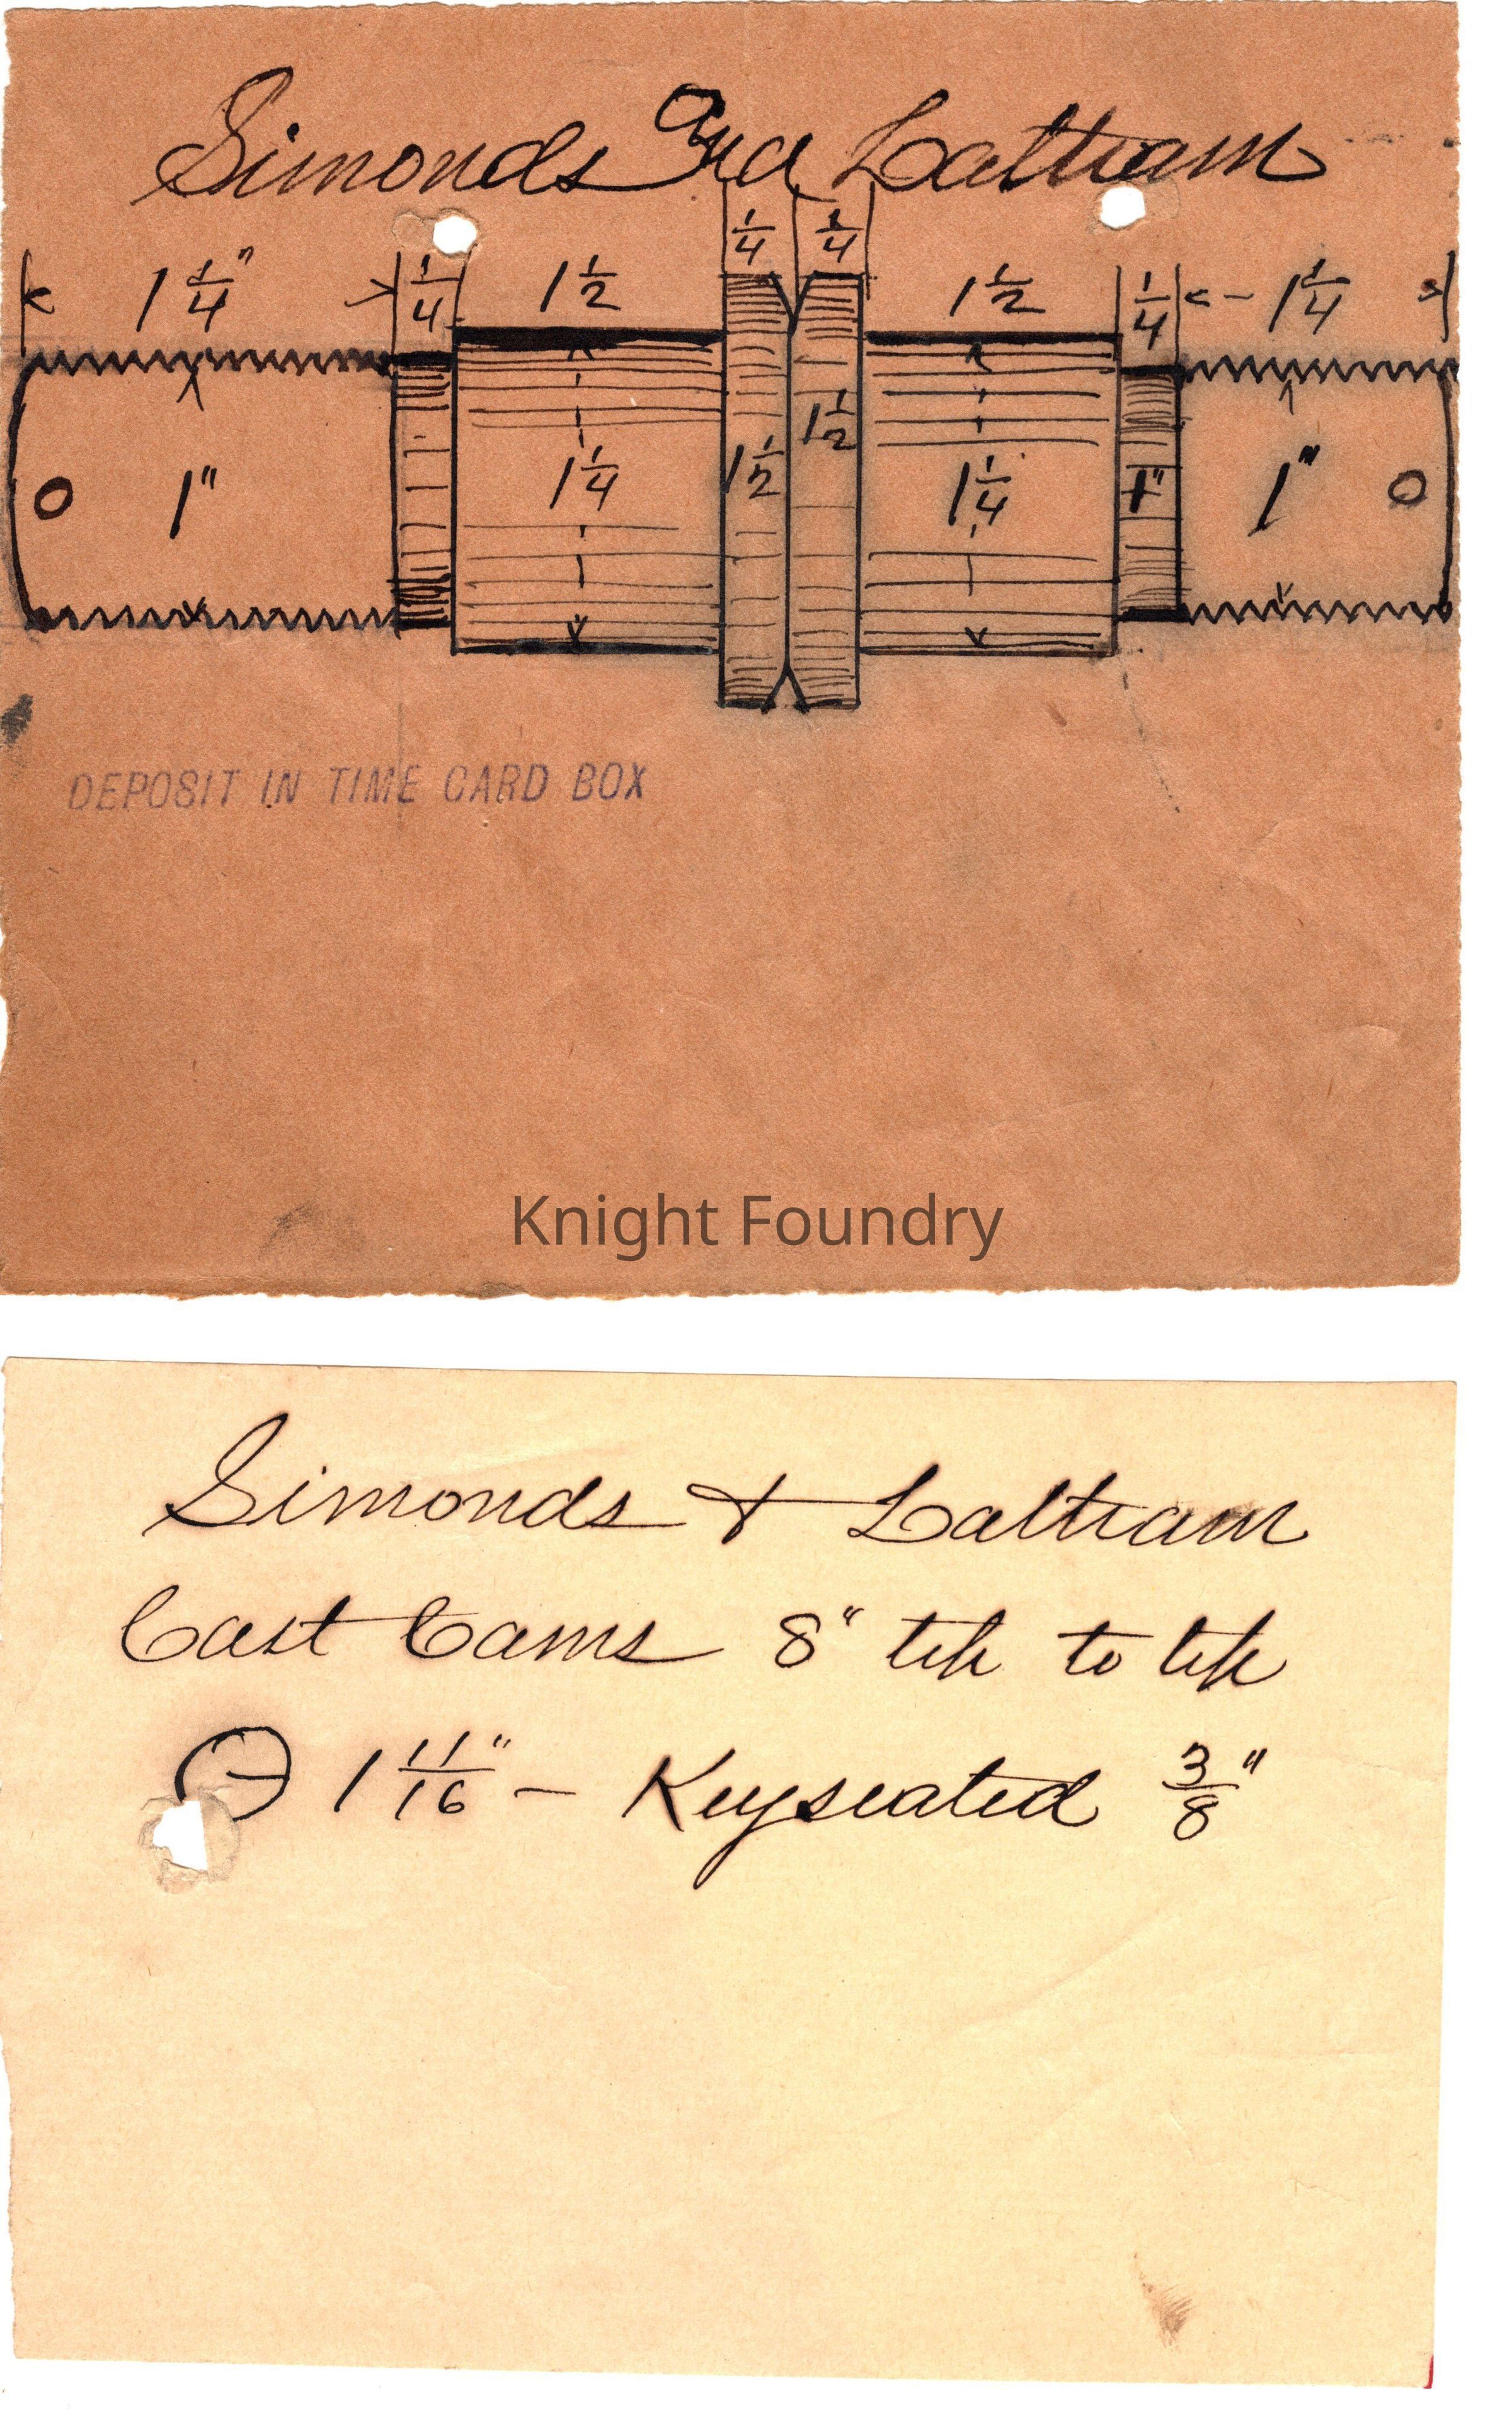 Simonds And Laltram
1/4 1/4
1 1/4" 1/4 1 1/2 1 1/2 1/4 1 1/4
1 1/2
O 1" 1 1/4 1 1/2 1 1/4 1" 1" O
DEPOSIT IN TIME CARD BOX
Knight Foundry
Simonds & Laltram
Cast Cams 8" tip to tip
1 11/16" - Keyseated 3/8"